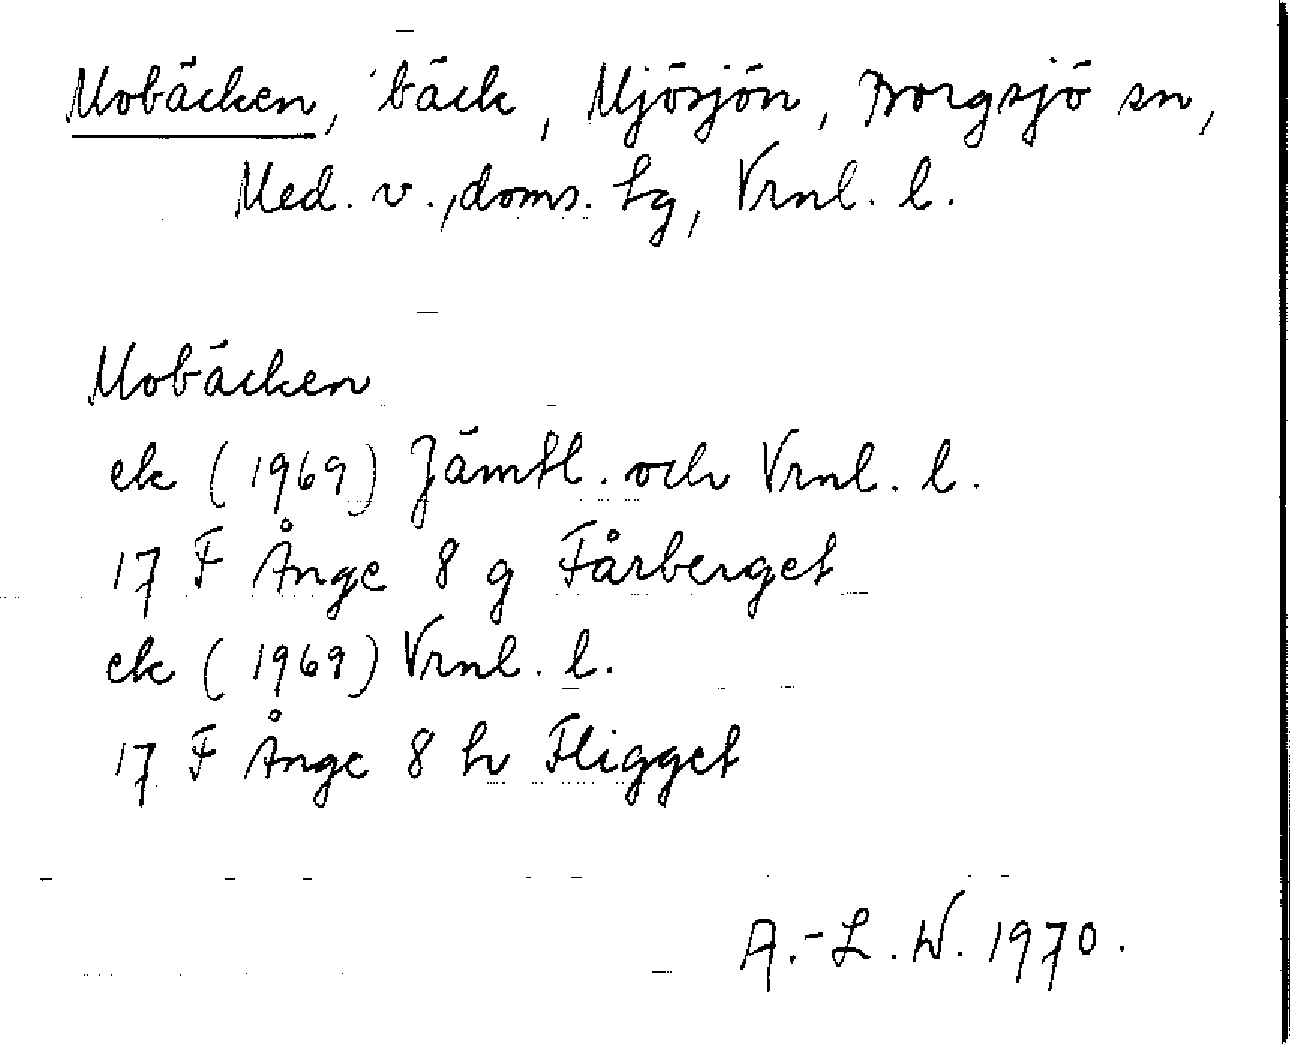 Mobäcken, bäck, Mjösjön, Borgsjö sn,
Med. v., doms. hg, Vrnl. l.
Mobäcken
ek (1969) Jämtl. och Vrnl. l.
17 F Ånge 8 g Fårberget
ek (1969) Vrnl. l.
17 F Ånge 8 h Fligget
A.-L. W. 1970.